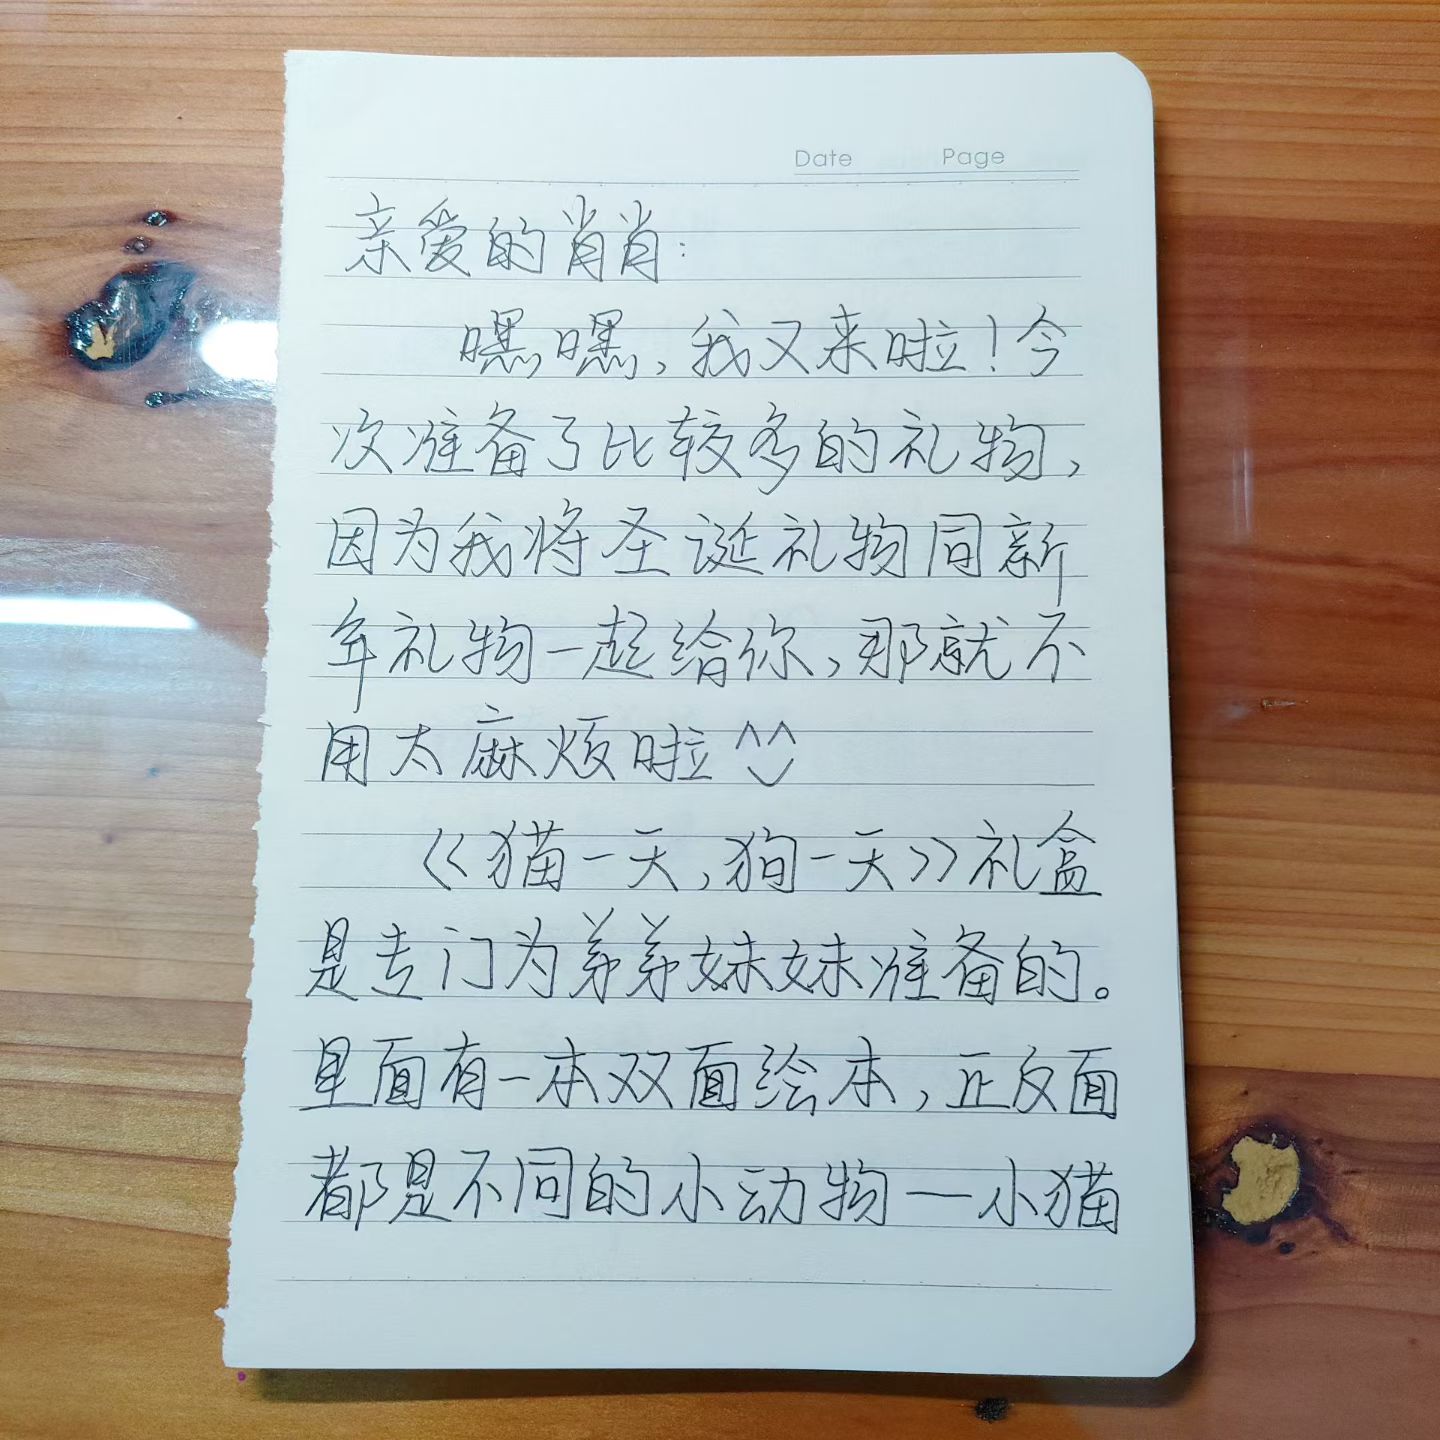 Date Page
亲爱的肖肖：
嘿嘿，我又来啦！今
次准备了比较多的礼物，
因为我将圣诞礼物同新
年礼物一起给你，那就不
用太麻烦啦^^
《猫一天，狗一天》礼盒
是专门为弟弟妹妹准备的。
里面有一本双面绘本，正反面
都是不同的小动物—小猫